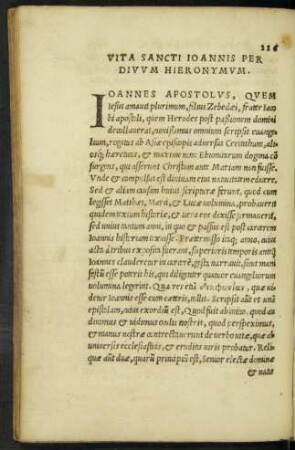 226
VITA SANCTI IOANNIS PER
DIVVM HIERONYMVM.
IOANNES APOSTOLVS, QVEM
Iesus amauit plurimum, filius Zebedæi, frater Iaco
bi apostoli, quem Herodes post passionem domini
decollauerat, nouissimus omnium scripsit euange
lium, rogatus ab Asiæ episcopis aduersus Cerinthum, ali
osq́; hæreticos, & maxime tunc Ebionitarum dogma cõ
surgens, qui asserunt Christum ante Mariam non fuisse.
Vnde & compulsus est diuinam eius naturam edicere.
Sed & aliam causam huius scripturæ ferunt, quod cum
legisset Matthæi, Marci, & Lucæ uolumina, probauerit
quidem textum historiæ, & uera eos dixisse firmauerit,
sed unius tantum anni, in quo & passus est post carcerem
Ioannis historiam texuisse. Prætermisso itaq; anno, cuius
acta à tribus exposita fuerant, superioris temporis anteq̃
Ioannes clauderetur in carcerẽ, gesta narrauit, sicut mani
festũ esse poterit his, qui diligenter quatuor euangeliorum
uolumina legerint. Quæ res etiã quæ ui
detur Ioannis esse cum cæteris, tollit. Scripsit aũt et unã
epistolam, cuius exordiũ est, Quod fuit ab initio, quod au
diuimus & uidimus oculis nostris, quod perspeximus,
& manus nostræ contrectauerunt de uerbo uitæ, quæ ab
uniuersis ecclesiasticis, & eruditis uiris probatur. Reli
quæ aũt duæ, quarũ principiũ est, Senior electæ dominæ
& natis